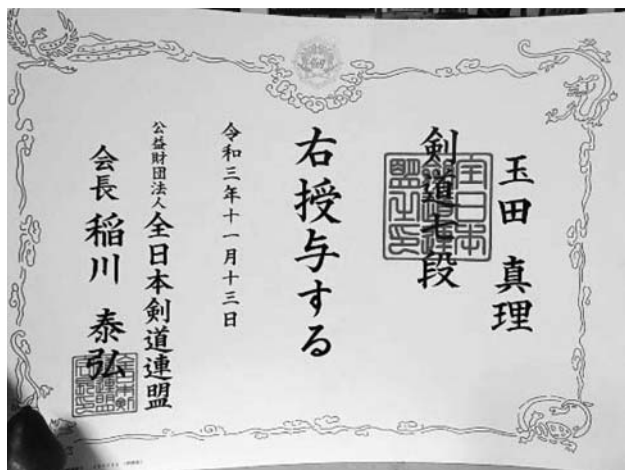 玉田 真理
剣道七段
右授与する
令和三年十一月十三日
公益財団法人 全日本剣道連盟
会長 稲川 泰弘